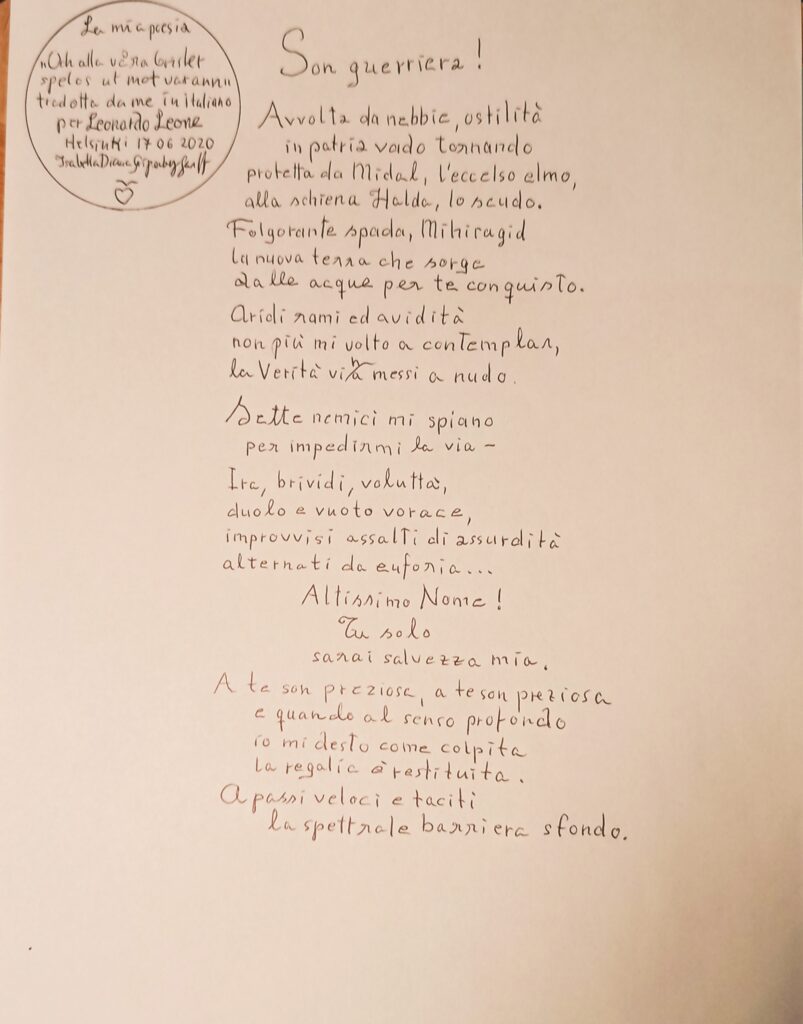 La mia poesia
"Och alla våra brister
speglas ut mot varann"
tradotta da me in italiano
per Leonardo Leone
Helsinki 17 06 2020
Son guerriera!
Avvolta da nebbie, ostilità
in patria vado tornando
protetta da Midal, l'eccelso elmo,
alla schiena Halda, lo scudo.
Folgorante spada, Mihiragid
la nuova terra che sorge
dalle acque per te conquisto.
Aridi rami ed avidità
non più mi volto a contemplar,
la Verità vi ha messi a nudo.
Sette nemici mi spiano
per impedirmi la via –
Ira, brividi, voluttà,
duolo e vuoto vorace,
improvvisi assalti di assurdità
alternati da euforia...
Altissimo Nome!
Tu solo
sarai salvezza mia.
A te son preziosa, a te son preziosa
e quando al senso profondo
io mi desto come colpita
la regalìa è restituita.
A passi veloci e taciti
la spettrale barriera sfondo.